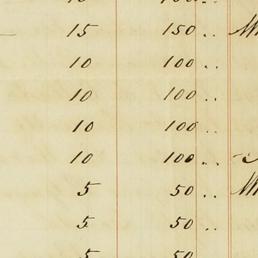 15 150 ..
10 100 ..
10 100 ..
10 100 ..
10 100 ..
5 50 ..
5 50 ..
5 50